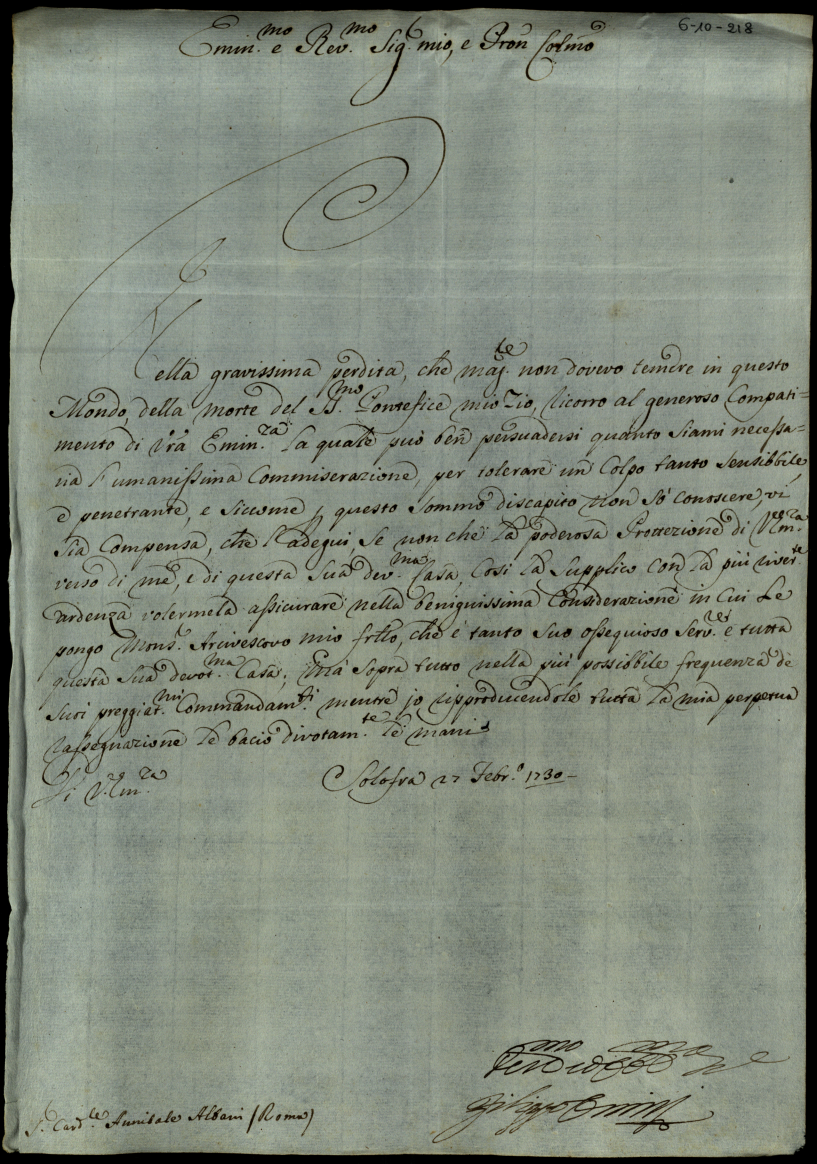 6-10-218
Emin.mo e Rev.mo Sig.r mio, e Pron Colmo
Nella gravissima perdita, che mag.te non dovevo temere in questo
Mondo, della morte del SS.mo Pontefice mio Zio, ricorro al generoso Compati=
mento di Vra Emin.za la quale può ben persuadersi quanto siami necessa=
ria l'umanissima Commiserazione, per tolerare un Colpo tanto sensibbile,
e penetrante, e siccome p questo sommo discapito non sò conoscere, vi
sia Compensa, che l'adegui, se non che la poderosa Protezione di V. Em.za
verso di me, e di questa sua dev.ma Casa, Così la supplico con la più river.te
ardenza volermela assicurare nella benignissima Considerazione in cui Le
pongo Mons.r Arcivescovo mio frllo, che è tanto suo ossequioso Serv.re e tutta
questa sua devot.ma Casa; Mà sopra tutto nella più possibbile frequenza de
suoi preggiat.mi Commandam.ti mentre jo riproducendole tutta la mia perpetua
rassegnazione le bacio divotam.te le mani
Di V. Em.za Solofra 27 Febr.o 1730
Filippo Orsini
S.r Card.le Annibale Albani (Roma)